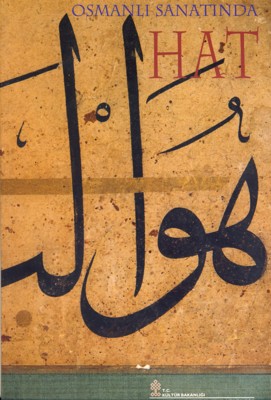 OSMANLI SANATINDA
HAT
هوا لـ
T.C.
KÜLTÜR BAKANLIĞI